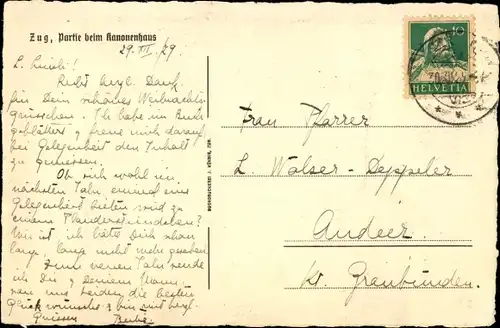 Zug, Partie beim Kanonenhaus
29. XII. 29.
L. Luisli!
Recht herzl. Dank
für Dein schönes Weihnachts-
grüsschen. Ich habe im Buch
geblättert & freue mich darauf
bei Gelegenheit den Inhalt
zu geniessen.
Ob sich wohl im
nächsten Jahr, einmal eine
Gelegenheit bieten wird zu
einem Plauderstündchen?
Mir ist, ich hätte Dich schon
lang, lang nicht mehr gesehen.
Zum neuen Jahr sende
ich Dir & Deinem Mann,
von uns beiden die besten
Glückwünsche & bin mit herzl.
Grüssen
BUCHDRUCKEREI J. KÜNDIG, ZUG
10
HELVETIA
Frau Pfarrer
L. Walser-Deppeler
Andeer.
Kt. Graubünden.